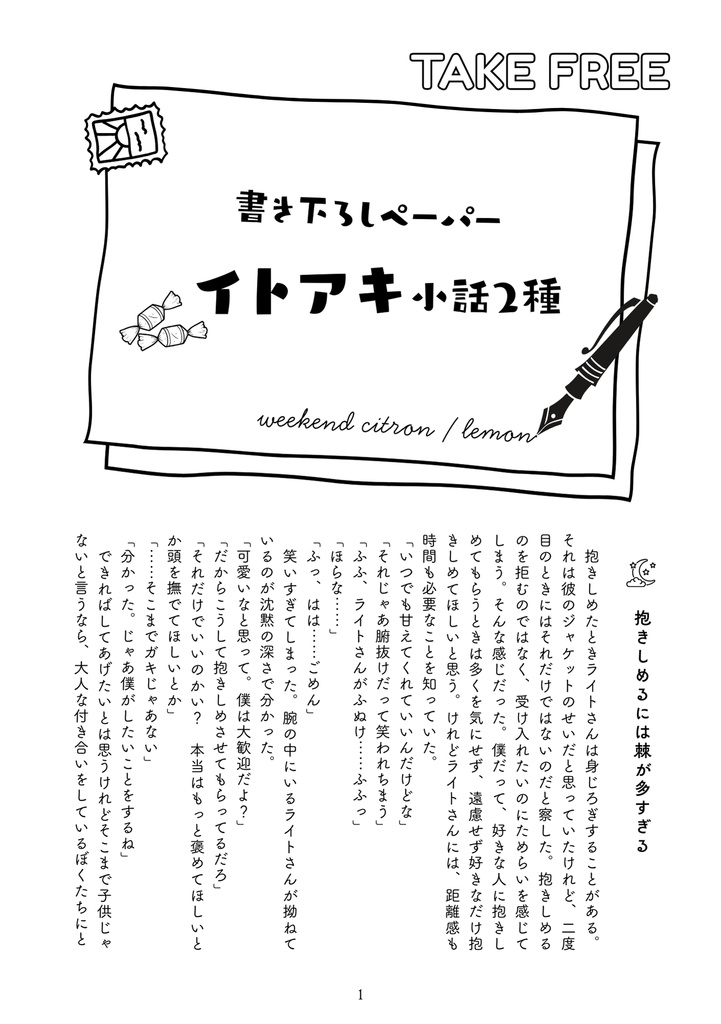 TAKE FREE
書き下ろしペーパー
イトアキ小話2種
weekend citron / lemon
抱きしめるには棘が多すぎる
抱きしめたときライトさんは身じろぎすることがある。
それは彼のジャケットのせいだと思っていたけれど、二度
目のときにはそれだけではないのだと察した。抱きしめる
のを拒むのではなく、受け入れたいのにためらいを感じて
しまう。そんな感じだった。僕だって、好きな人に抱きし
めてもらうときは多くを気にせず、遠慮せず好きなだけ抱
きしめてほしいと思う。けれどライトさんには、距離感も
時間も必要なことを知っていた。
「いつでも甘えてくれていいんだけどな」
「それじゃあ腑抜けだって笑われちまう」
「ふふ、ライトさんがふぬけ……ふふっ」
「ほらな……」
「ふっ、はは……ごめん」
笑いすぎてしまった。腕の中にいるライトさんが拗ねて
いるのが沈黙の深さで分かった。
「可愛いなと思って。僕は大歓迎だよ?」
「だからこうして抱きしめさせてもらってるだろ」
「それだけでいいのかい? 本当はもっと褒めてほしいと
か頭を撫でてほしいとか」
「……そこまでガキじゃあない」
「分かった。じゃあ僕がしたいことをするね」
できればしてあげたいとは思うけれどそこまで子供じゃ
ないと言うなら、大人な付き合いをしているぼくたちにと
1